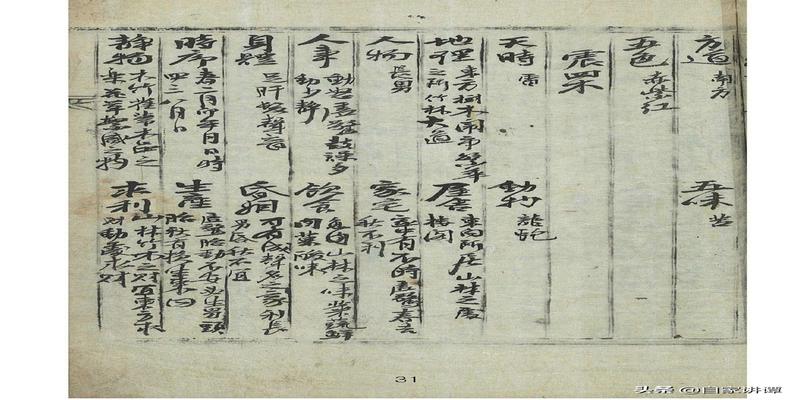 方道 南方
五味 苦
五色 赤紫红
震四木
天時 雷
動物 龍蛇
地理 東方樹木鬧市
之所竹林大道
屋舍 東向所居山林之處
樓閣
人物 長男
家宅 家中有不時虛驚春吉
秋不利
人事 動怒虛驚鼓躁多
動少静
飲食 山林之味菜蔬鮮
肉菓酸味
身體 足肝髮聲音
婚姻 可有成聲名之家利長
男 秋不宜
時序 春二月卯年月日時
四三八月日
生產 虛驚胎動不安頭生男頭
胎秋占損宜東向
静物 木竹萑葦木之
花草繁盛之物
求利 山林竹木之財宜東方求
財動處求財
31
头条 @自家讲谭